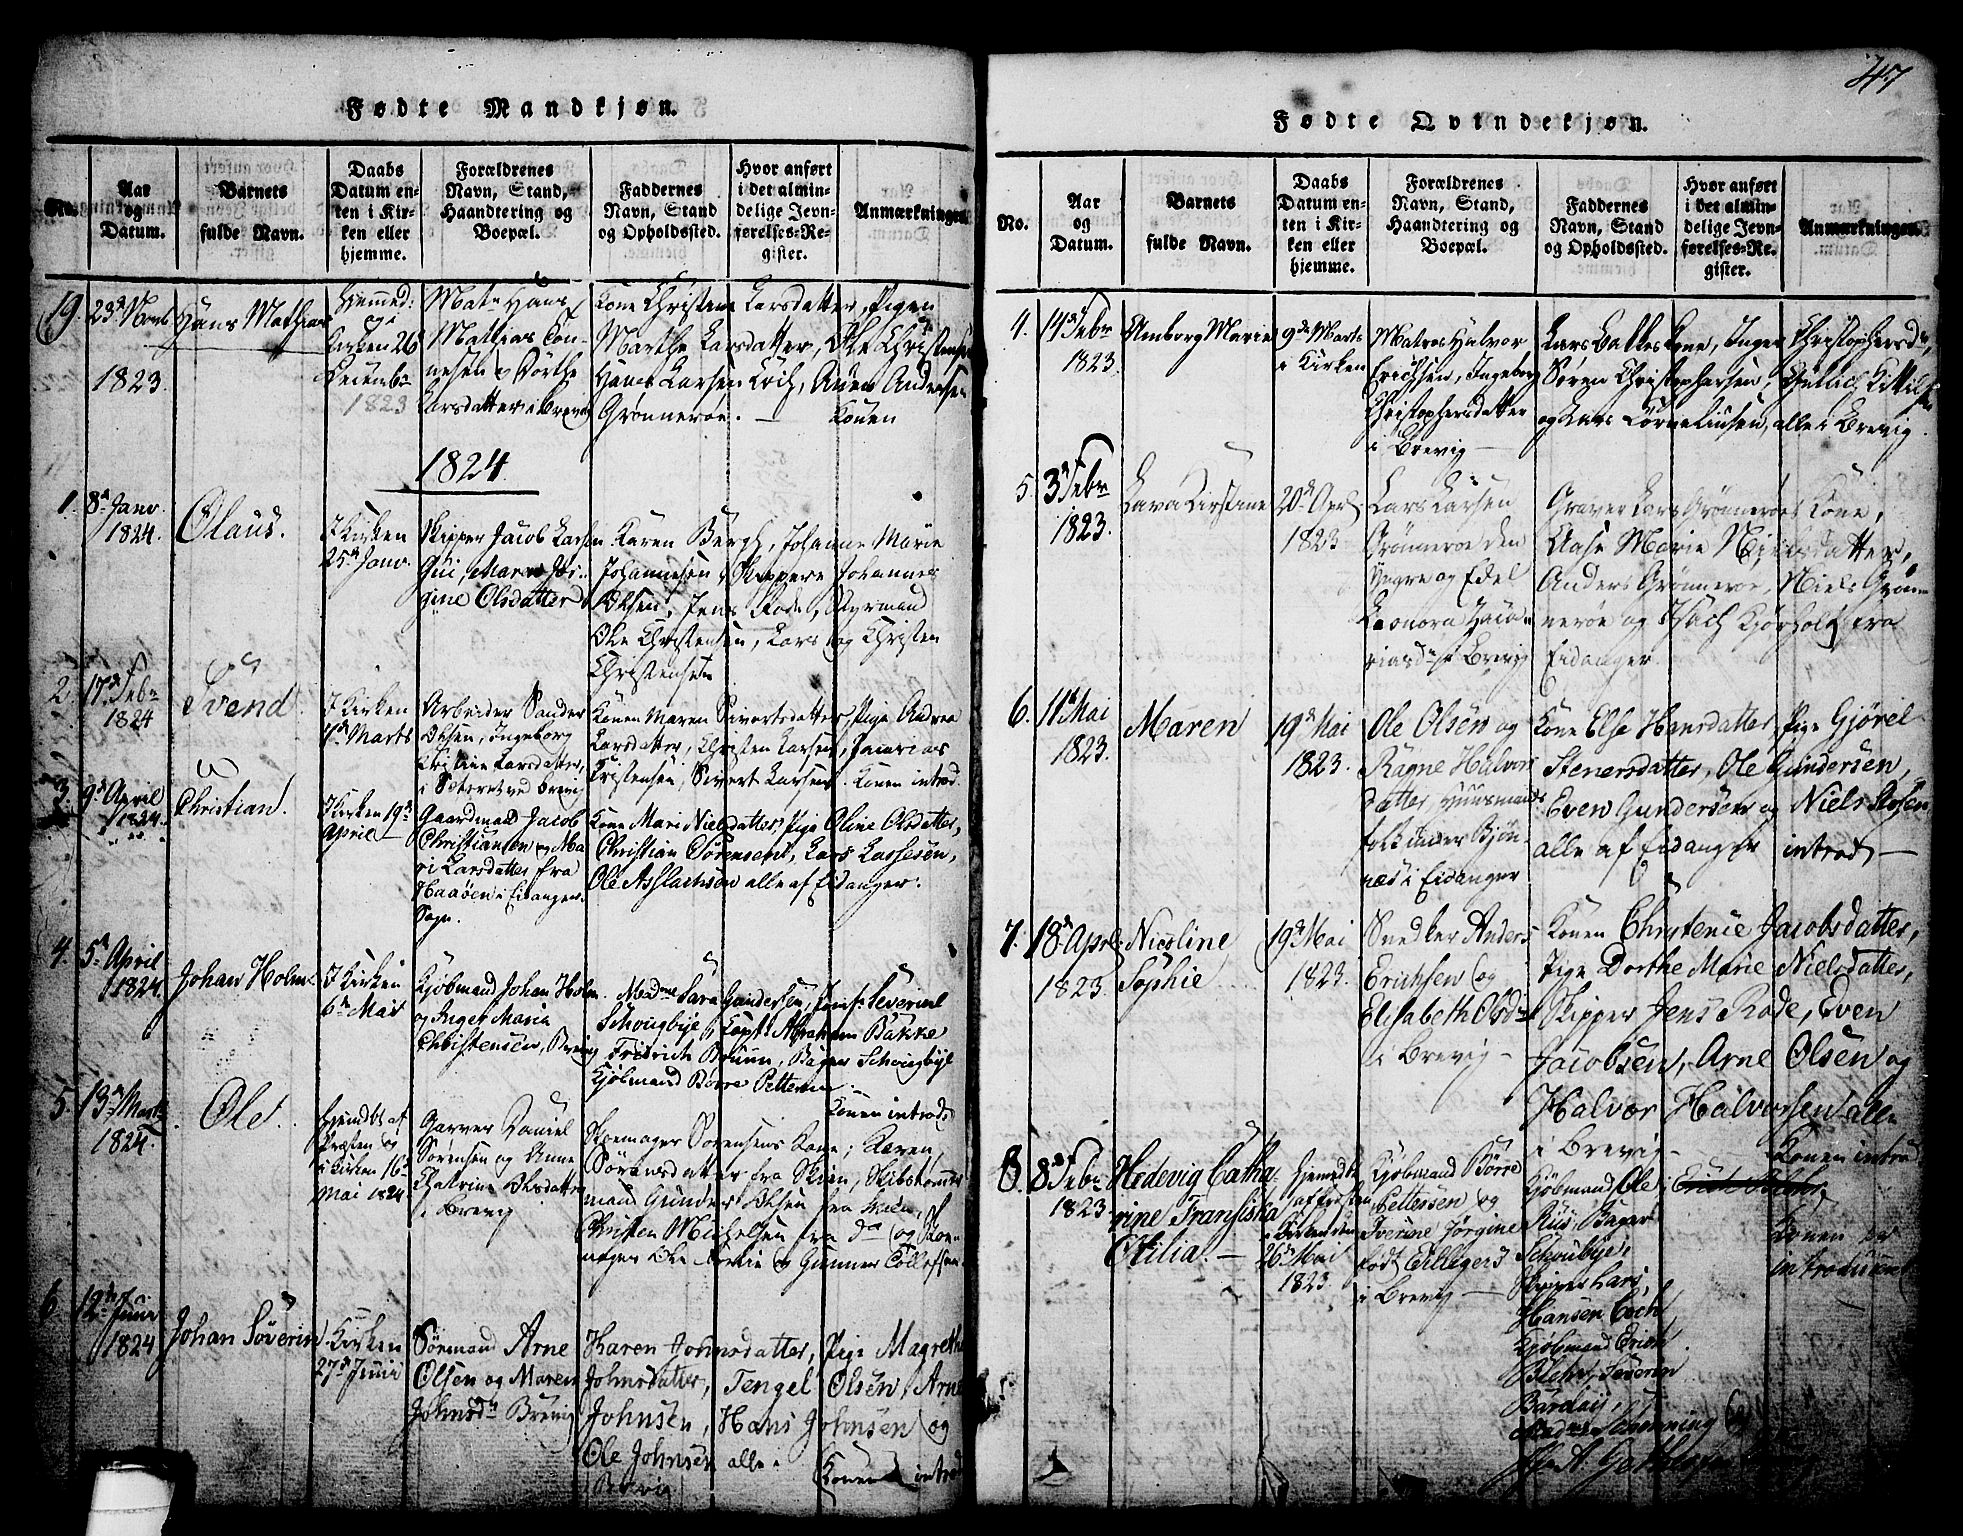 47
Fødte Mandkjøn.
No.
Aar
og
Datum.
Barnets
fulde Navn.
Daabs
Datum en-
ten i Kir-
ken eller
hjemme.
Forældrenes
Navn, Stand,
Haandtering og
Boepæl.
Faddernes
Navn, Stand
og Opholdssted.
Hvor anført
i det almin-
delige Jevn-
førelses-Re-
gister.
Anmærkninger.
19.
23d Novb
1823
Hans Mathias
Hiemmed:
og i
Kirken 26
Decembr
1823
Hans
Mathias
Dorthe
Larsdatter i Brevig
Kone Christine Larsdatter, Pigen
Marthe Larsdatter, Ole Christensen
Hans Larsen Koch, Anders Andersen
Grønneroe.
Konen
1824
1.
8d Janv.
1824.
Olaus.
I Kirken
25d Janv.
Skipper Jacob Larsen
Maren
gine Olsdatter
Karen Bergh, Johanne Marie
Johannesen, Skipper Johannes
Olsen, Jens Rode, Styrmand
Ole Christensen, Lars og Christen
Christensen
2.
17d Feb.
1824
Svend.
I Kirken
7d Marts
Arbeider Sander
Olsen, Ingeborg
Kirstine Larsdatter,
ved Brevig
Konen Maren Sivertsdatter, Pige Andrea
Larsdatter, Christen Larsen, Zacarias
Kristensen, Sivert Larsen. Konen introd.
3.
9d April
1824.
Christian.
I Kirken 19d
April
Gaardmand Jacob
Christiansen og Ma
ri Larsdatter fra
Haaøen i Eidanger
Sogn.
Kone Mari Nielsdatter, Pige Oline Olsdatter,
Christian Sørensen, Lars Lassesen,
Ole Asslachsen alle af Eidanger.
4.
5d April
1824.
Johan Holm
I Kirken
6d Mai
Kjøbmand Johan Holm
og Inger Maria
Christensen, Brevig
Madme Sara Gundersen, Jomf: Severine
Schougbye, Capt: Abraham Bakke
Fredrich Bruun, Bager Schougbye
Kjøbmand Børre Pettersen.
Konen introd
5.
13d Marts
1824.
Ole.
Hjemdbt af
Præsten og
i Kirken 16d
Mai 1824
Garver Daniel
Sørensen og Anne
Chatrine Olsdatter
i Brevig
Sørensens Kone, Karen
Sørensdatter fra Skien, Skibstømmer
mand Gunder Olsen fra Skien,
Christen Michelsen fra do og
Gunner Tollefsen
6.
12te Juni
1824
Johan Søverin
I Kirken
27d Junii
Sømand Arne
Olsen og Maren
Johnsdr Brevig
Karen Johnsdatter, Pige Magrethe
Johnsdatter, Tengel Olsen, Arne
Johnsen, Hans Johnsen og
Ole Johnsen alle i
Brevig
Konen introd
Fødte Qvindekjøn.
No.
Aar
og
Datum.
Barnets
fulde Navn.
Daabs
Datum en-
ten i Kir-
ken eller
hjemme.
Forældrenes
Navn, Stand,
Haandtering og
Boepæl.
Faddernes
Navn, Stand
og Opholdssted.
Hvor anført
i det almin-
delige Jevn-
førelses-Re-
gister.
Anmærkninger.
4.
14d Febr
1823.
Amborg Marie
9de Marts
i Kirken
Matros Halvor
Erichsen, Ingeborg
Christophersdatter
i Brevig
Lars Bakkes Kone, Inger Christophersdr,
Søren Christophersen, Gullich Kittilsen
og Lars Corneliusen, alle i Brevig.
5.
3d Febr
1823.
Lava Kirstine
20d
1823
Lars Larsen
Grønneroe den
Yngre og Edel
Leonora Zacha
riasdr Brevig
Graver Lars Grønneroes Kone,
Aase Marie Nielsdatter,
Anders Grønneroe, Niels Grøn-
neroe og Isach Kjørholt fra
Eidanger.
6.
11d Mai
1823.
Maren
19d Mai
1823.
Ole Olsen og
Ragne Halvors
datter Huusmands
folk under Bjøn-
næs i Eidanger
Kone Else Hansdatter Pige Gjørel
Stenersdatter, Ole Gundersen,
Even Gundersen og Niels Olsen
alle af Eidanger introd
7.
18d April
1823.
Nicoline
Sophie
19d Mai
1823.
Snedker Anders
Erichsen og
Elisabeth Olsdr
i Brevig
Konen Christenie Jacobsdatter,
Pige Dorthe Marie Nielsdatter,
Skipper Jens Rode, Even
Jacobsen, Arne Olsen og
Halvor Halvorsen alle
i Brevig.
Konen introd
8.
8d Febr
1823
Hedevig Catha-
rine Fransiska
Otilia.
Hjemedbt
af Præsten
i Kirken den
26d Mai
1823.
Kjøbmand Børre
Pettersen og
Sverine Jørgine
født Eilligers
i Brevig
Kjøbmand Ole
Riis, Bager
Schoubye,
Skipper Lars
Hansen Coch
Kjøbmand Erich
Blehr, Severin
Bardais,
Madme Schønning og
Konen er
introduceret